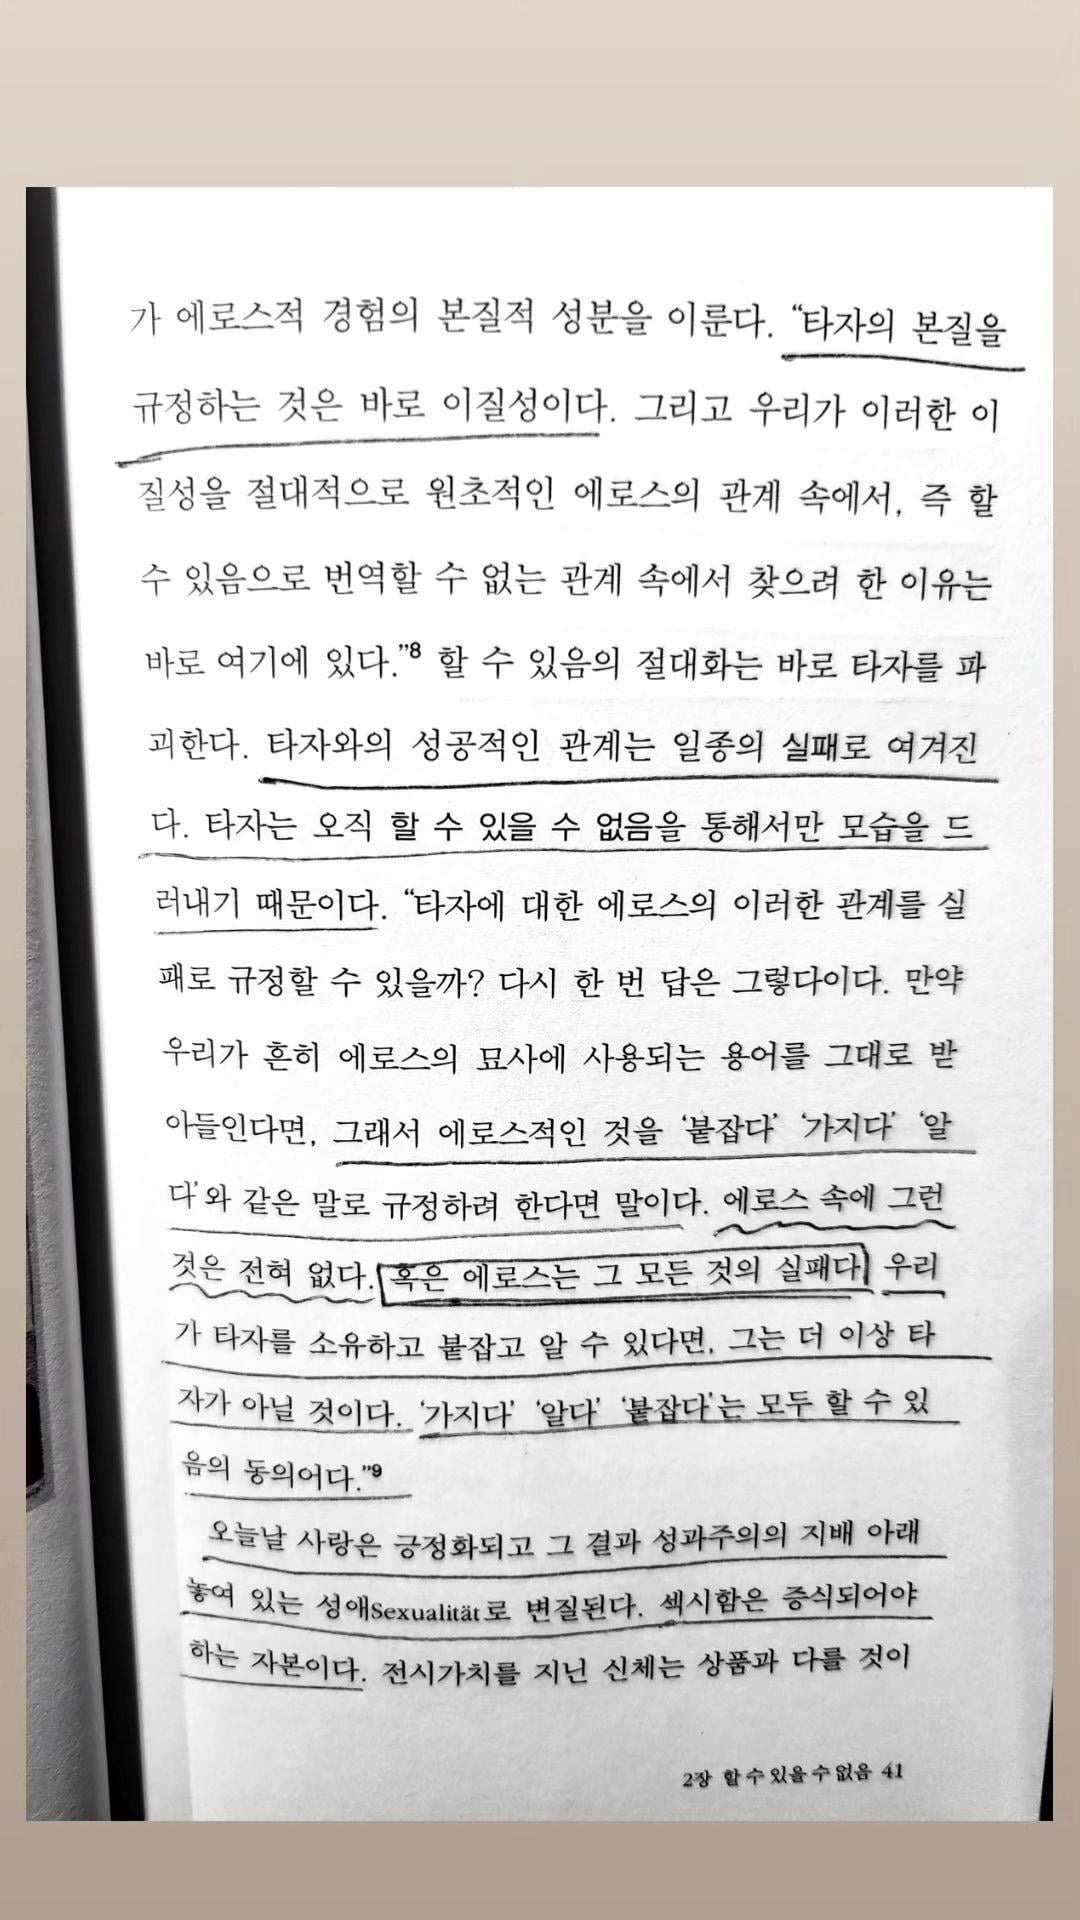 가 에로스적 경험의 본질적 성분을 이룬다. “타자의 본질을
규정하는 것은 바로 이질성이다. 그리고 우리가 이러한 이
질성을 절대적으로 원초적인 에로스의 관계 속에서, 즉 할
수 있음으로 번역할 수 없는 관계 속에서 찾으려 한 이유는
바로 여기에 있다.”8 할 수 있음의 절대화는 바로 타자를 파
괴한다. 타자와의 성공적인 관계는 일종의 실패로 여겨진
다. 타자는 오직 할 수 있을 수 없음을 통해서만 모습을 드
러내기 때문이다. “타자에 대한 에로스의 이러한 관계를 실
패로 규정할 수 있을까? 다시 한 번 답은 그렇다이다. 만약
우리가 흔히 에로스의 묘사에 사용되는 용어를 그대로 받
아들인다면, 그래서 에로스적인 것을 ‘붙잡다’ ‘가지다’ ‘알
다’와 같은 말로 규정하려 한다면 말이다. 에로스 속에 그런
것은 전혀 없다. 혹은 에로스는 그 모든 것의 실패다. 우리
가 타자를 소유하고 붙잡고 알 수 있다면, 그는 더 이상 타
자가 아닐 것이다. ‘가지다’ ‘알다’ ‘붙잡다’는 모두 할 수 있
음의 동의어다.”9
오늘날 사랑은 긍정화되고 그 결과 성과주의의 지배 아래
놓여 있는 성애Sexualität로 변질된다. 섹시함은 증식되어야
하는 자본이다. 전시가치를 지닌 신체는 상품과 다를 것이
2장 할 수 있을 수 없음 41